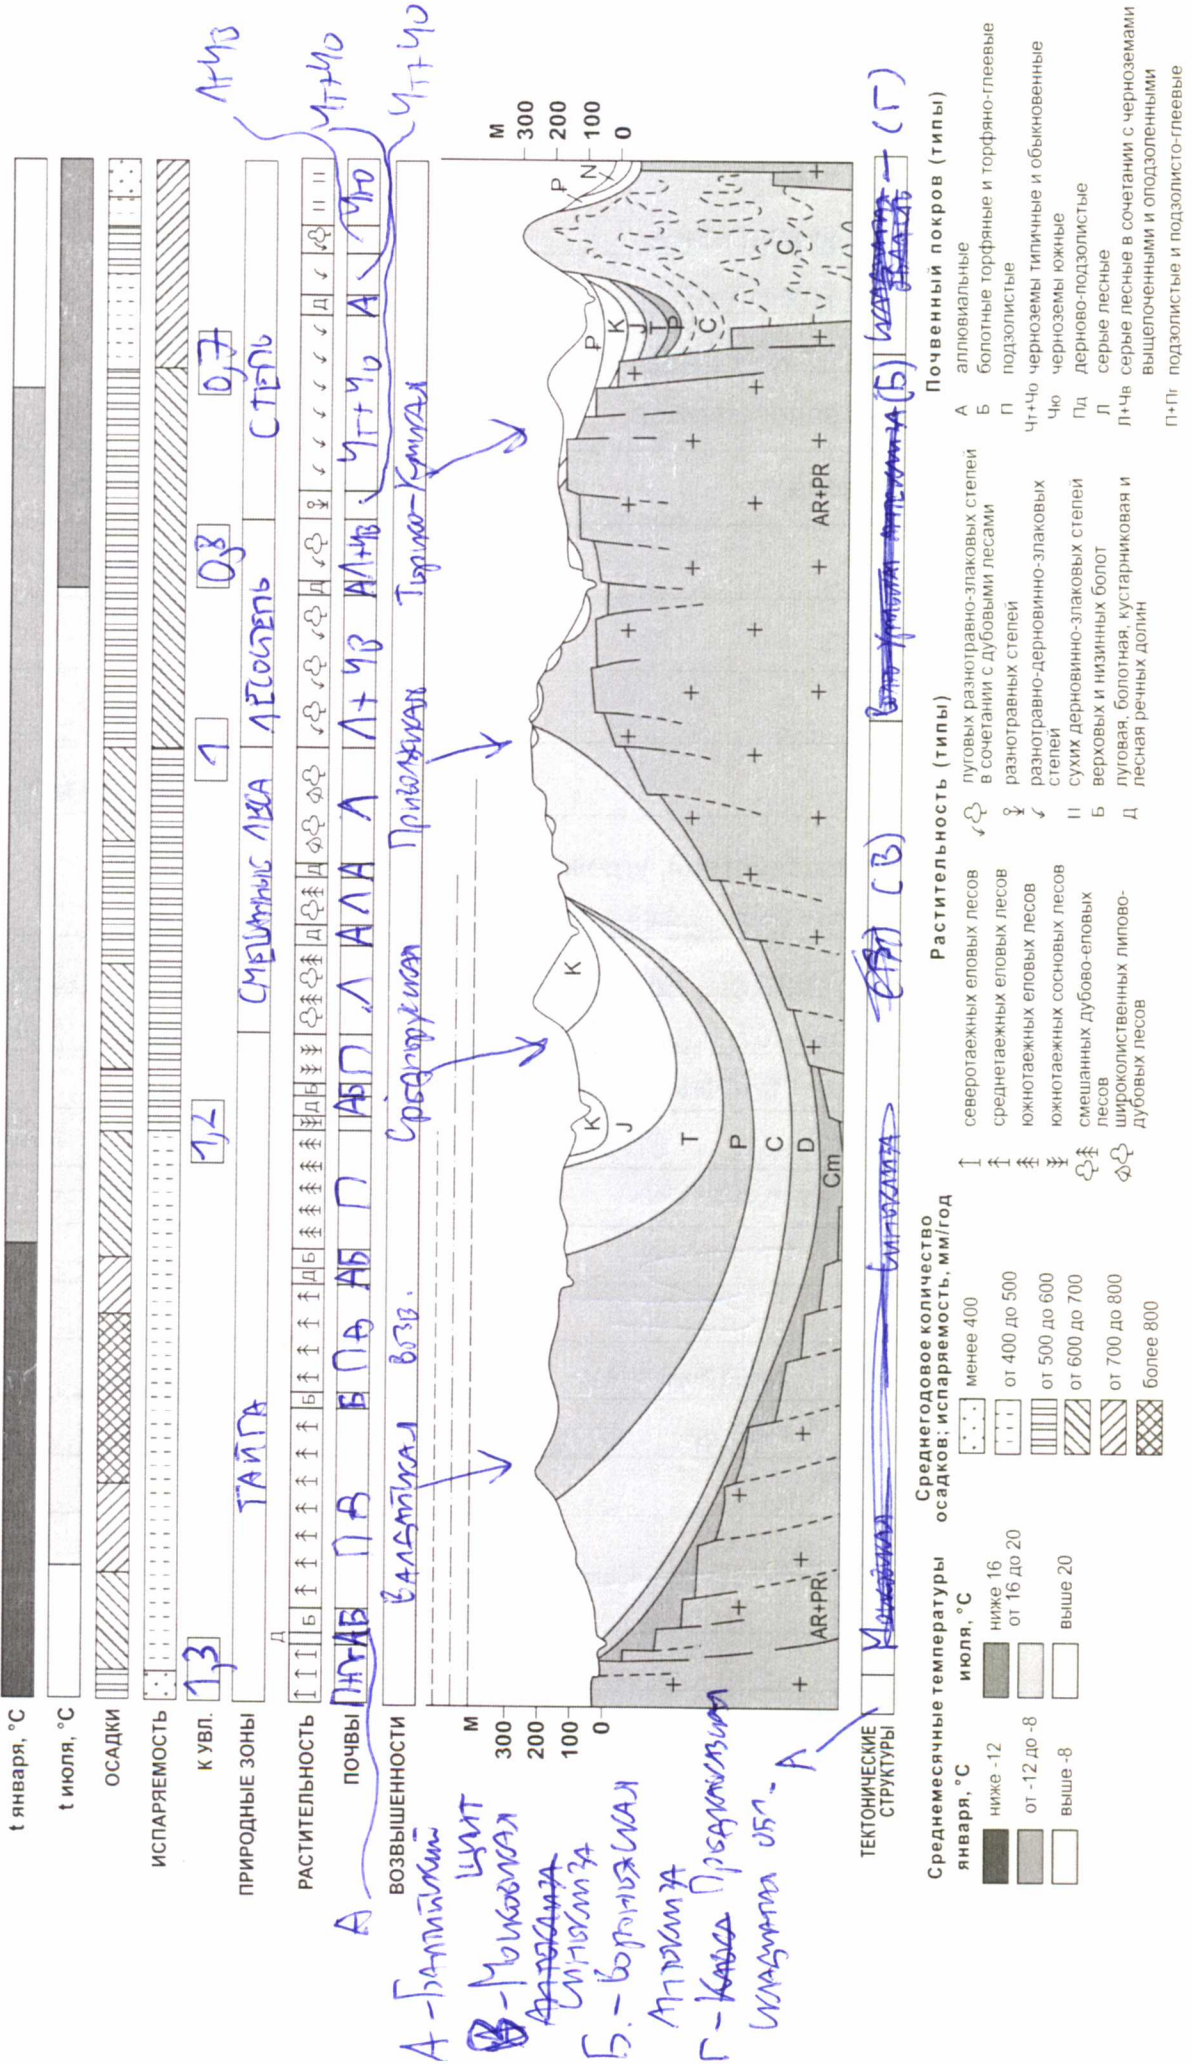 t января, °C
t июля, °C
ОСАДКИ
ИСПАРЯЕМОСТЬ
К УВЛ. 1,3 1,2 1 0,8 0,7
Л+ЧВ
ПРИРОДНЫЕ ЗОНЫ ТАЙГА СМЕШАННЫЕ ЛЕСА ЛЕСОСТЕПЬ СТЕПЬ
РАСТИТЕЛЬНОСТЬ Д Б Б Д Б Д Б Д Д Д Д
ЧТ+ЧО
ПОЧВЫ П+Пг А Б П Д Б П Д А Б П А Б П Л А Л А Л Л+ЧВ А Л+ЧВ ЧТ+ЧО А ЧЮ
ЧТ+ЧО
А
ВОЗВЫШЕННОСТИ Валдайская возв. Среднерусская Приволжская
М
300
200
100
0
М
300
200
100
0
K
J
T
P
C
D
Cm
K
P
K
J
T
P
C
C
P
N
AR+PR
AR+PR
А - Балтийский щит
В - Московская
синеклиза
Б. - Воронежская
антеклиза
Г - Предкавказская
складчатая обл.
А
ТЕКТОНИЧЕСКИЕ СТРУКТУРЫ (В) (Б) (Г)
Среднемесячные температуры
января, °C
ниже -12
от -12 до -8
выше -8
июля, °C
ниже 16
от 16 до 20
выше 20
Среднегодовое количество
осадков; испаряемость, мм/год
менее 400
от 400 до 500
от 500 до 600
от 600 до 700
от 700 до 800
более 800
Растительность (типы)
северотаежных еловых лесов
среднетаежных еловых лесов
южнотаежных еловых лесов
южнотаежных сосновых лесов
смешанных дубово-еловых
лесов
широколиственных липово-
дубовых лесов
луговых разнотравно-злаковых степей
в сочетании с дубовыми лесами
разнотравных степей
разнотравно-дерновинно-злаковых
степей
сухих дерновинно-злаковых степей
Б верховых и низинных болот
Д луговая, болотная, кустарниковая и
лесная речных долин
Почвенный покров (типы)
А аллювиальные
Б болотные торфяные и торфяно-глеевые
П подзолистые
Чт+Чо черноземы типичные и обыкновенные
Чю черноземы южные
Пд дерново-подзолистые
Л серые лесные
Л+Чв серые лесные в сочетании с черноземами
выщелоченными и оподзоленными
П+Пг подзолистые и подзолисто-глеевые